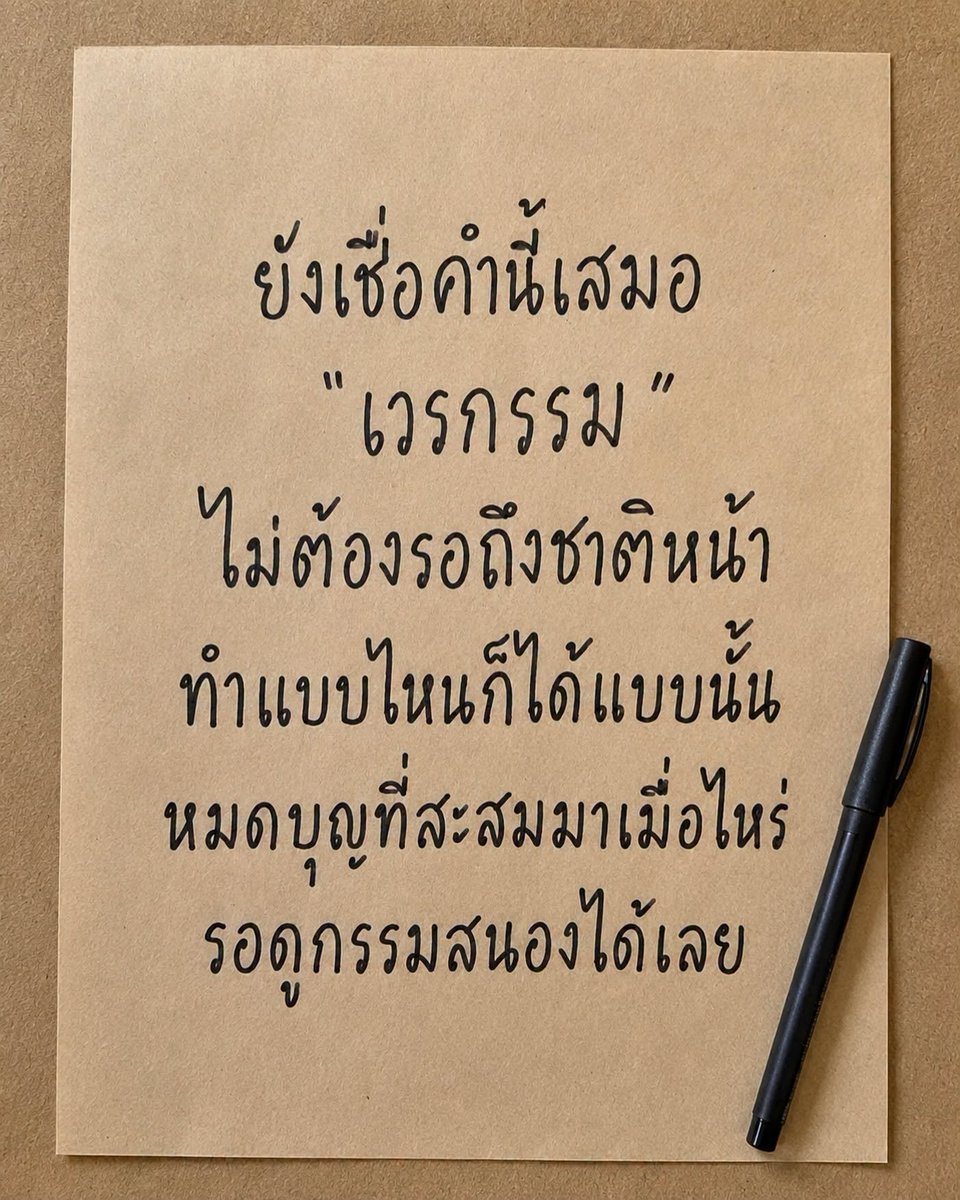 ยังเชื่อคำนี้เสมอ
"เวรกรรม"
ไม่ต้องรอถึงชาติหน้า
ทำแบบไหนก็ได้แบบนั้น
หมดบุญที่สะสมมาเมื่อไหร่
รอดูกรรมสนองได้เลย